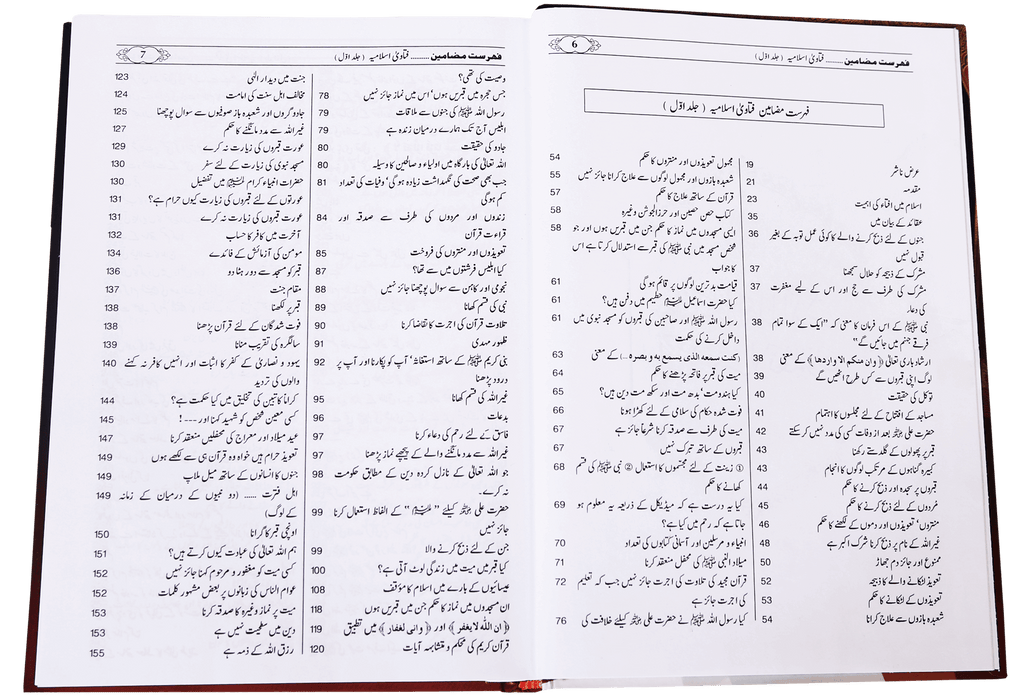 6
فہرست مضامین ......... فتاویٰ اسلامیہ (جلد اوّل)
فہرست مضامین فتاویٰ اسلامیہ (جلد اوّل)
عرض ناشر 19
مقدمہ 21
اسلام میں افتاء کی اہمیت 23
عقائد کے بیان میں 35
جنوں کے لئے ذبح کرنے والے کا کوئی عمل توبہ کے بغیر 36
قبول نہیں
مشرک کے ذبیحہ کو حلال سمجھنا 37
مشرک کی طرف سے حج اور اس کے لیے مغفرت 37
کی دعاء
نبی ﷺ کے اس فرمان کا معنی کہ ''ایک کے سوا تمام 38
فرقے جہنم میں جائیں گے''
ارشاد باری تعالیٰ ﴿وان منکم الا واردھا﴾ کے معنی 38
لوگ اپنی قبروں سے کس طرح اٹھیں گے 39
توکل کی حقیقت 40
مساجد کے افتتاح کے لئے مجلسوں کا اہتمام 41
حضرت علی رضی اللہ عنہ بعد از وفات کسی کی مدد نہیں کر سکتے 42
قبر پر پھولوں کے گلدستے رکھنا 43
کبیرہ گناہوں کے مرتکب لوگوں کا انجام 43
قبروں پر سجدہ اور ذبح کرنے کا حکم 44
مُردوں کے لئے ذبح کرنے کا حکم 45
منتروں' تعویذوں اور دموں کے لکھنے کا حکم 46
غیر اللہ کے نام پر ذبح کرنا شرک اکبر ہے 48
ممنوع اور جائز دم جھاڑ 50
تعویذ لٹکانے والے کا ذبیحہ 52
تعویذوں کے لٹکانے کا حکم 53
شعبدہ بازوں سے علاج کرانا 54
مجہول تعویذوں اور منتروں کا حکم 54
شعبدہ بازوں اور مجہول لوگوں سے علاج کرانا جائز نہیں 55
قرآن کے ساتھ علاج کا حکم 57
کتاب حصن حصین اور حرز الجوشن وغیرہ 58
ایسی مسجدوں میں نماز کا حکم جن میں قبریں ہوں اور جو 58
شخص مسجد میں نبی ﷺ کی قبر سے استدلال کرتا ہے اس
کا جواب
قیامت بدترین لوگوں پر قائم ہو گی 61
کیا حضرت اسماعیل علیہ السلام حطیم میں دفن ہیں؟ 61
رسول اللہ ﷺ اور صاحبین کی قبروں کو مسجد نبوی میں 61
داخل کرنے کی حکمت
(کنت سمعه الذی یسمع به و بصره ...) کے معنی 63
میت کی قبر پر فاتحہ پڑھنے کا حکم 64
کیا ہندومت' بدھ مت اور سکھ مت دین ہیں؟ 65
فوت شدہ حکام کی سلامی کے لئے کھڑا ہونا 66
میت کی طرف سے صدقہ کرنا شرعاً جائز ہے 67
قبروں کے ساتھ تبرک نہیں 67
① زینت کے لئے مجسموں کا استعمال ② نبی ﷺ کی قسم 68
کھانے کا حکم
کیا یہ درست ہے کہ میڈیکل کے ذریعہ یہ معلوم ہو 69
جاتا ہے کہ رحم میں کیا ہے؟
انبیاء و مرسلین اور آسمانی کتابوں کی تعداد 70
میلاد النبی ﷺ کی محفل منعقد کرنا 71
قرآن مجید کی تلاوت کی اجرت جائز نہیں جب کہ تعلیم 72
کی اجرت جائز ہے
کیا رسول اللہ ﷺ نے حضرت علی رضی اللہ عنہ کیلئے خلافت کی 76
7
فہرست مضامین ......... فتاویٰ اسلامیہ (جلد اوّل)
وصیت کی تھی؟
جس حجرہ میں قبریں ہوں' اس میں نماز جائز نہیں 78
رسول اللہ ﷺ کی جنوں سے ملاقات 79
ابلیس آج تک ہمارے درمیان زندہ ہے 79
جادو کی حقیقت 80
اللہ تعالیٰ کی بارگاہ میں اولیاء و صالحین کا وسیلہ 80
جب بھی صحت کی نگہداشت زیادہ ہو گی' وفیات کی تعداد 81
کم ہو گی
زندوں اور مردوں کی طرف سے صدقہ اور 84
قراءت قرآن
تعویذوں اور منتروں کی فروخت 85
کیا ابلیس فرشتوں میں سے تھا؟ 87
نجومی اور کاہن سے سوال پوچھنا جائز نہیں 88
نبی کی قسم کھانا 89
تلاوت قرآن کی اجرت کا تقاضا کرنا 90
ظہور مہدی 91
نبی کریم ﷺ کے ساتھ استغاثہ' آپ کو پکارنا اور آپ پر 92
درود پڑھنا
غیر اللہ کی قسم کھانا 95
بدعات 96
فاسق کے لئے رحم کی دعاء کرنا 97
غیر اللہ سے مدد مانگنے والے کے پیچھے نماز پڑھنا 97
جو اللہ تعالیٰ کے نازل کردہ دین کے مطابق حکومت 98
نہ کرے۔
حضرت علی رضی اللہ عنہ کیلئے ''ﷺ'' کے الفاظ استعمال کرنا 99
جائز نہیں
جن کے لئے ذبح کرنے والا 99
کیا قبر میں میت میں زندگی لوٹ آتی ہے؟ 100
عیسائیوں کے بارے میں اسلام کا مؤقف 108
ان مسجدوں میں نماز کا حکم جن میں قبریں ہوں 118
﴿ان اللّٰه لا یغفر﴾ اور ﴿وانی لغفار﴾ میں تطبیق 119
قرآن کریم کی محکم و متشابہ آیات 120
جنت میں دیدار الٰہی 123
مخالف اہل سنت کی امامت 124
جادوگروں اور شعبدہ باز صوفیوں سے سوال پوچھنا 125
غیر اللہ سے مدد مانگنے کا حکم 127
عورت قبروں کی زیارت نہ کرے 129
مسجد نبوی کی زیارت کے لئے سفر 130
حضرات انبیاء کرام علیہم السلام میں تفضیل 130
عورتوں کے لئے قبروں کی زیارت کیوں حرام ہے؟ 131
عورت قبروں کی زیارت نہ کرے 131
آخرت میں کافر کا حساب 132
مومن کی آزمائش کے فائدے 134
قبر کو مسجد سے دور ہٹا دو 136
مقام جنت 137
قبر پر لکھنا 138
فوت شدگان کے لئے قرآن پڑھنا 138
سالگرہ کی تقریب منانا 139
یہود و نصاریٰ کے کفر کا اثبات اور انہیں کافر نہ کہنے 140
والوں کی تردید
کراماً کاتبین کی تخلیق میں کیا حکمت ہے؟ 144
کسی معین شخص کو شہید کہنا اور ---! 145
عید میلاد اور معراج کی محفلیں منعقد کرنا 147
تعویذ حرام ہیں خواہ وہ قرآن ہی سے لکھے ہوں 149
جنوں کا انسانوں کے ساتھ میل ملاپ 149
اہل فترت ...... (دو نبیوں کے درمیان کے زمانہ 149
کے لوگ)
اونچی قبر کا گرانا 150
ہم اللہ تعالیٰ کی عبادت کیوں کرتے ہیں؟ 151
کسی میت کو مغفور و مرحوم کہنا جائز نہیں 152
عوام الناس کی زبانوں پر بعض مشہور کلمات 152
میت پر نماز وغیرہ کا صدقہ کرنا 153
دین میں سطحیت نہیں ہے 153
رزق اللہ کے ذمہ ہے 155